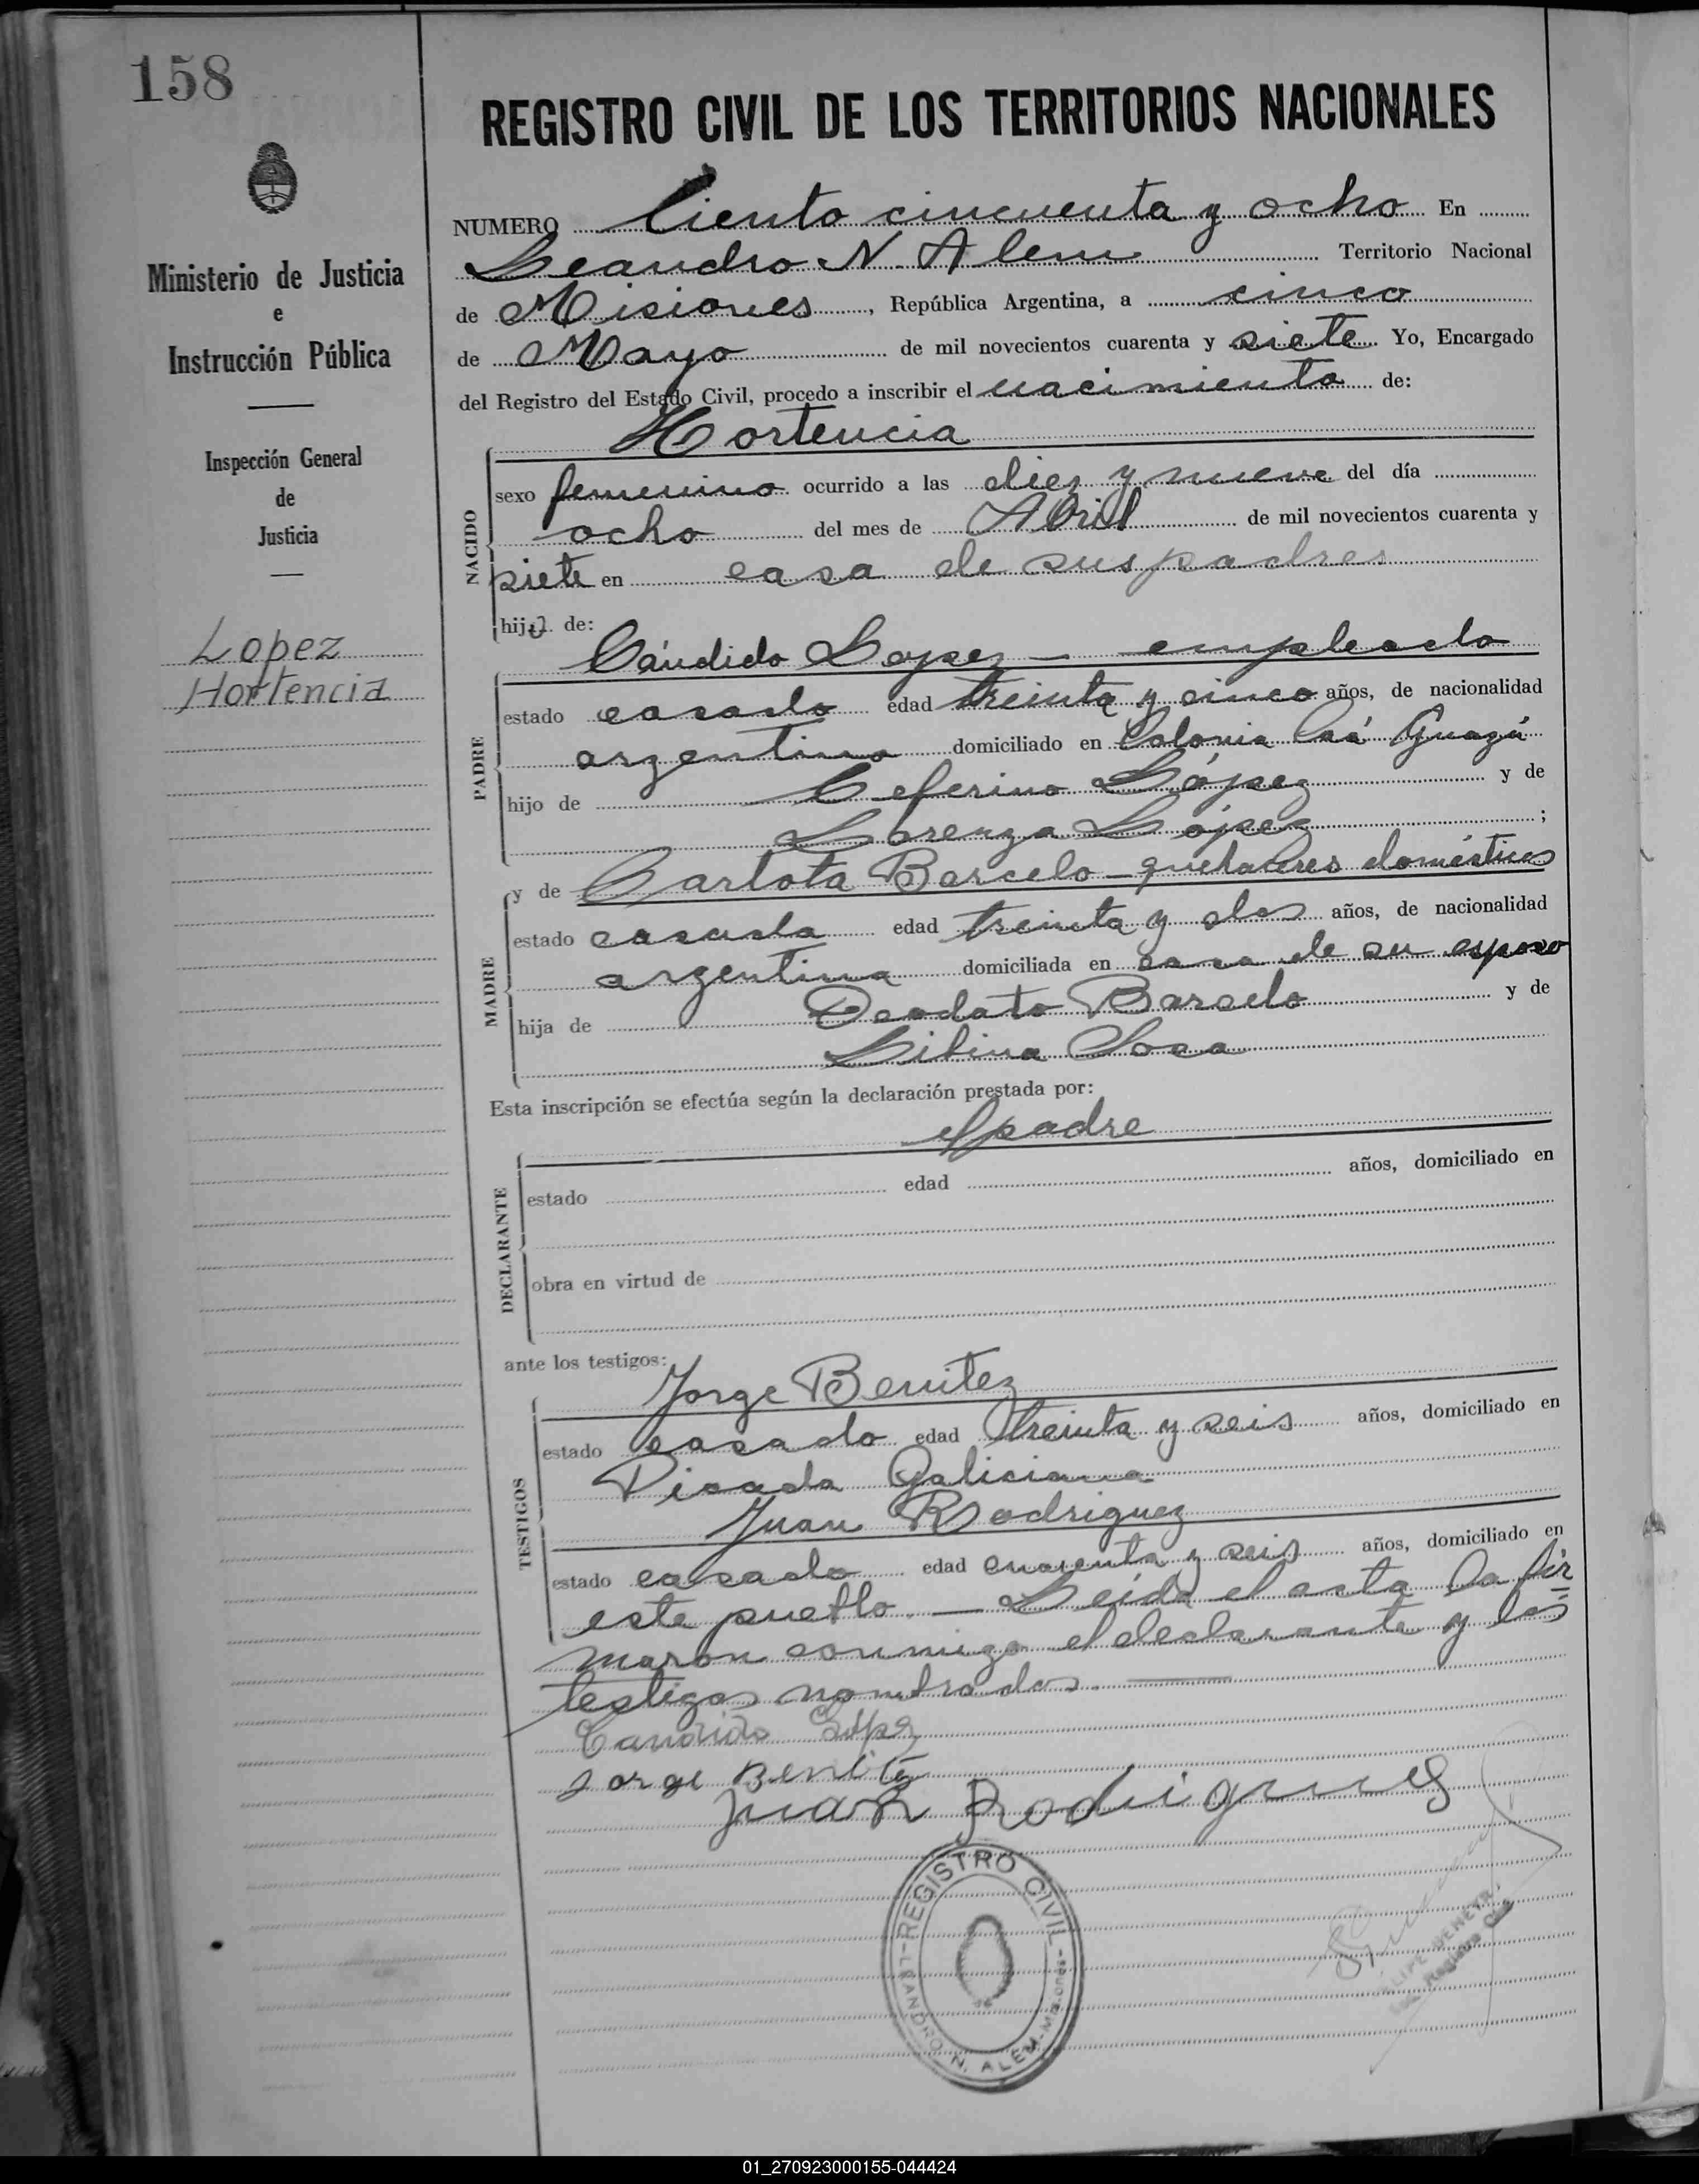 158
Ministerio de Justicia
e
Instrucción Pública
Inspección General
de
Justicia
Lopez
Hortencia
REGISTRO CIVIL DE LOS TERRITORIOS NACIONALES
NUMERO Ciento cincuenta y ocho En
Leandro N. Alem Territorio Nacional
de Misiones, República Argentina, a cinco
de Mayo de mil novecientos cuarenta y siete Yo, Encargado
del Registro del Estado Civil, procedo a inscribir el nacimiento de:
Hortencia
NACIDO
sexo femenino ocurrido a las diez y nueve del día
ocho del mes de Abril de mil novecientos cuarenta y
siete en casa de sus padres
hija de:
Cándido Lopez — empleado
PADRE
estado casado edad treinta y cinco años, de nacionalidad
argentino domiciliado en Colonia Caá Guazú
hijo de Ceferino López y de
Lorenza López;
MADRE
y de Carlota Barcelo - quehaceres domésticos
estado casada edad treinta y dos años, de nacionalidad
argentina domiciliada en casa de su esposo
hija de Deodato Barcelo y de
Libina Sosa
Esta inscripción se efectúa según la declaración prestada por:
el padre
DECLARANTE
estado edad años, domiciliado en
obra en virtud de
ante los testigos:
Jorge Benitez
TESTIGOS
estado casado edad treinta y seis años, domiciliado en
Picada Galiciana
Juan Rodriguez
estado casado edad cuarenta y seis años, domiciliado en
este pueblo. — Leída el acta la fir=
maron conmigo el declarante y los
testigos nombrados.
Candido Lopez
Jorge Benitez
Juan Rodriguez
REGISTRO CIVIL
LEANDRO N. ALEM - Misiones
Registro Civil
01_270923000155-044424